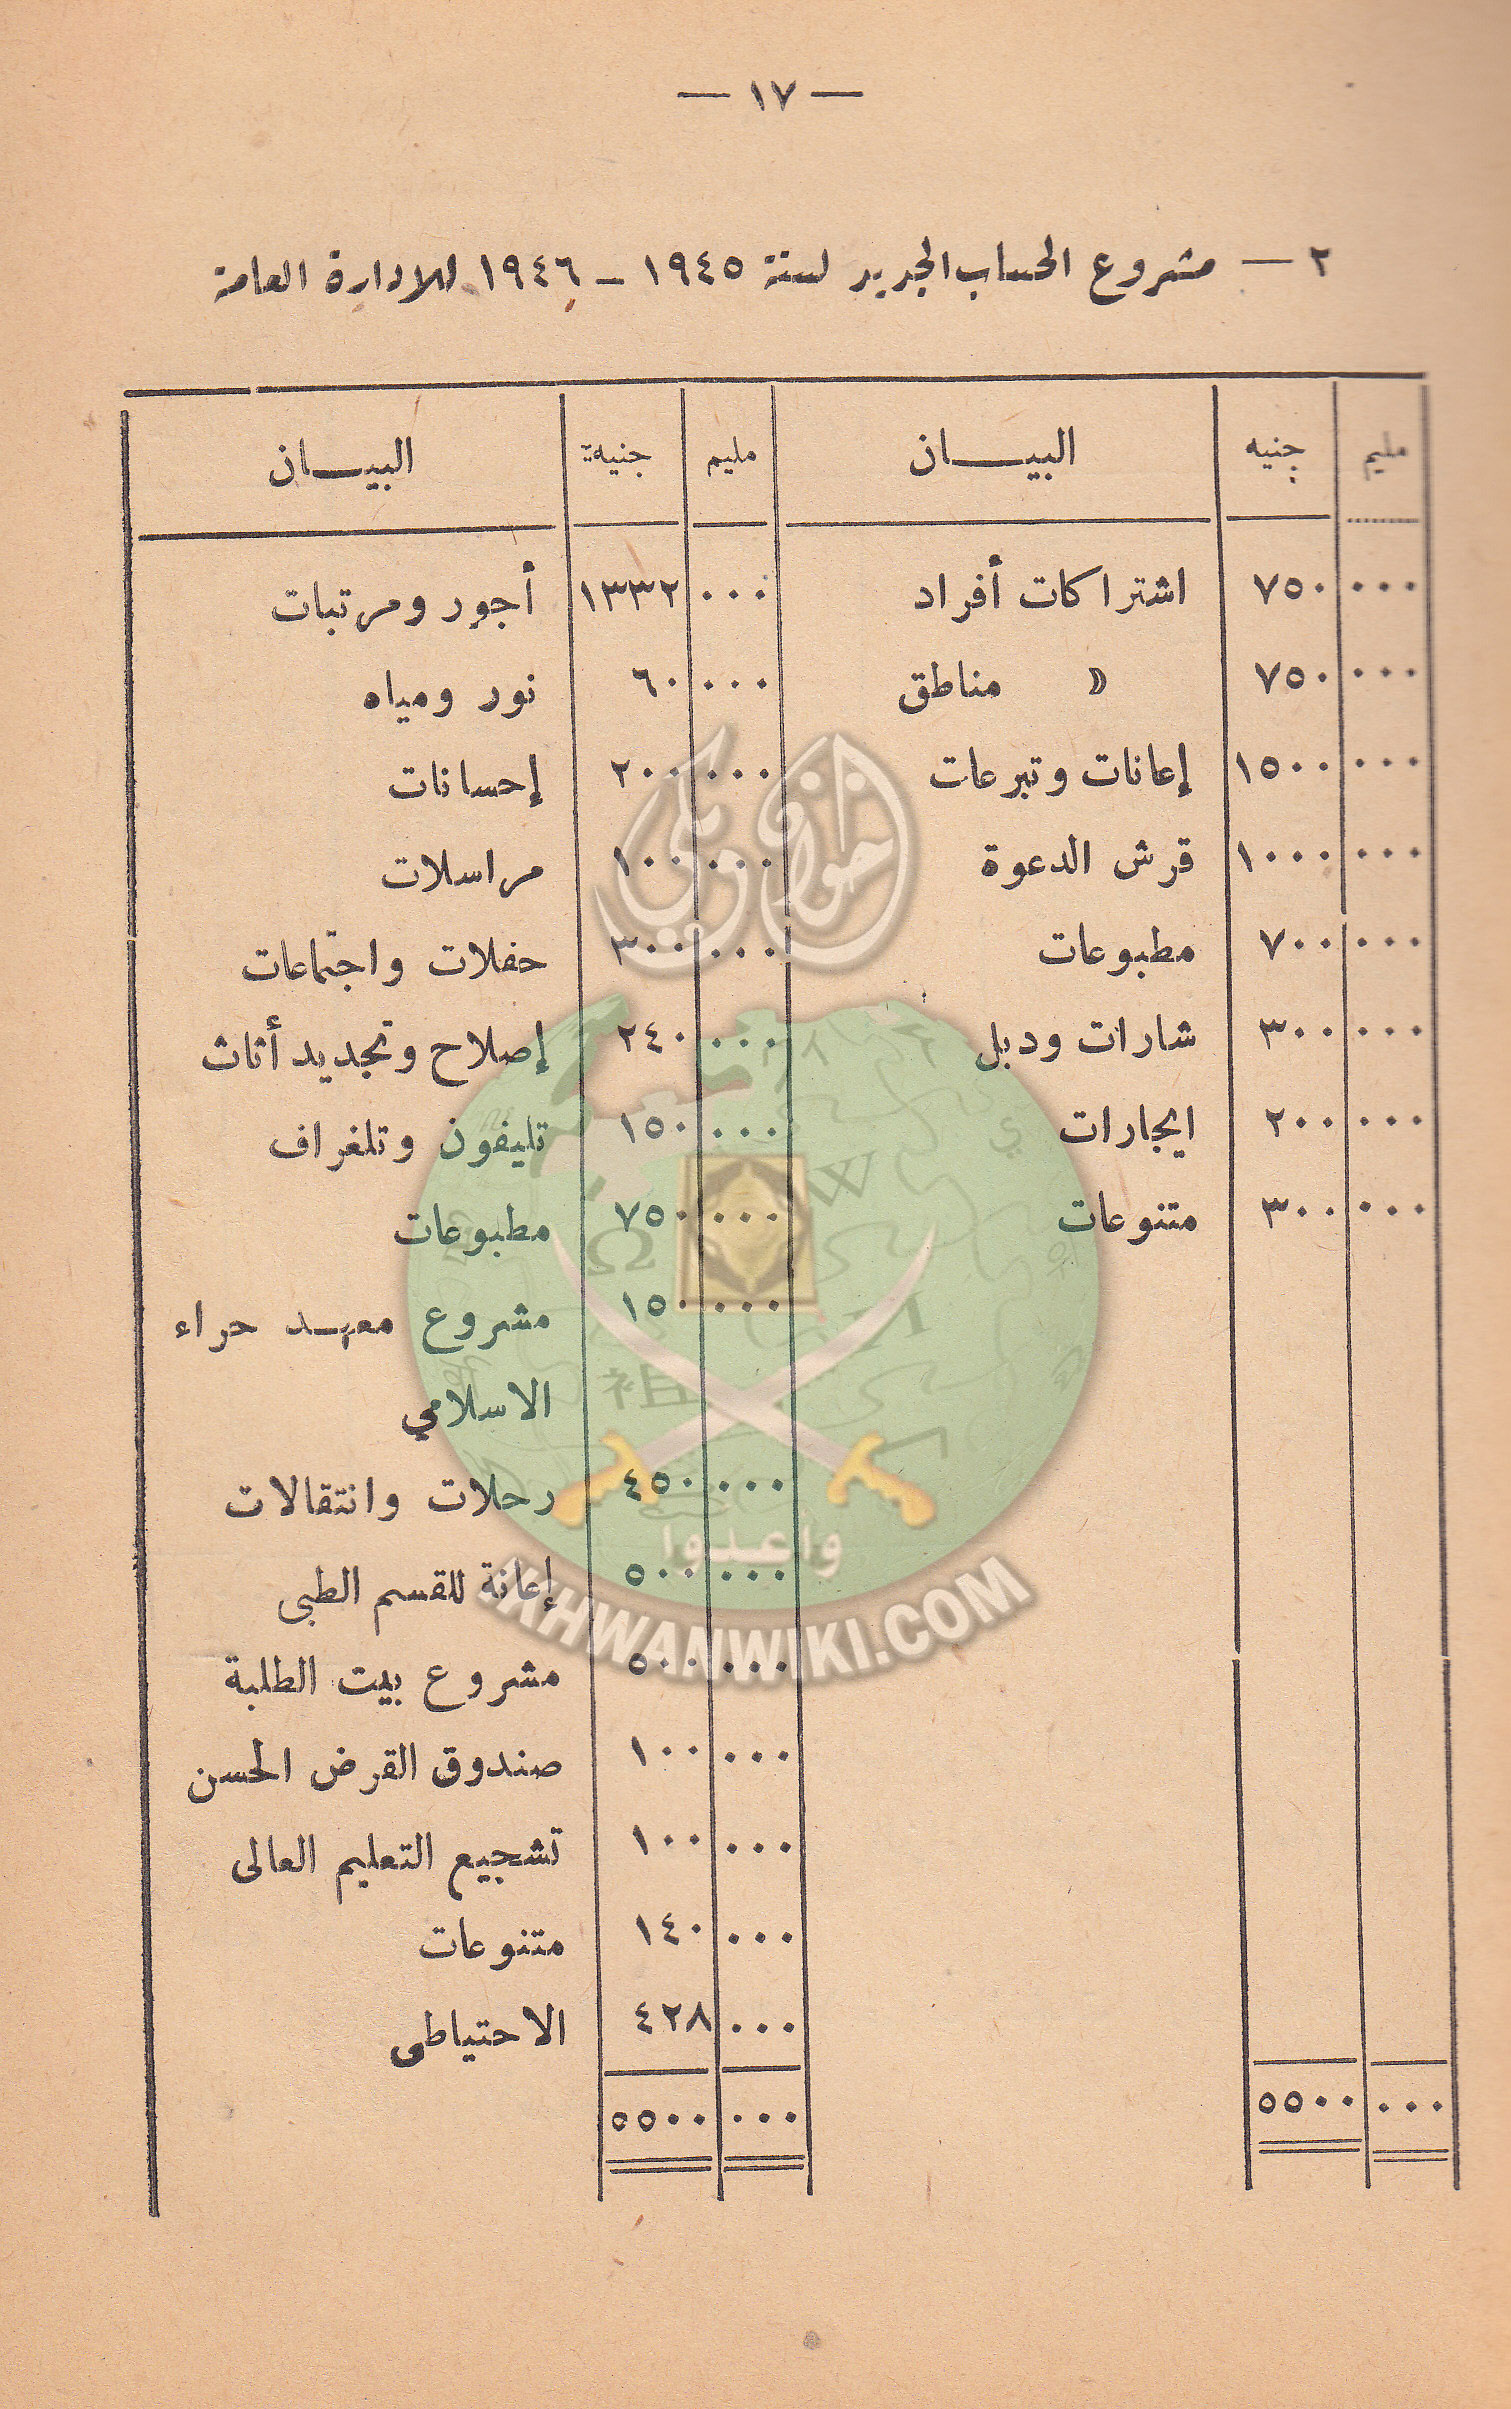 — ١٧ —
٢ — مشروع الحساب الجديد لسنة ١٩٤٥ ـ ١٩٤٦ للادارة العامة
مليم جنيه البيــــان مليم جنيهة البيــــان
٠٠٠ ٧٥٠ اشتراكات أفراد ٠٠٠ ١٣٣٢ أجور ومرتبات
٠٠٠ ٧٥٠ » مناطق ٠٠٠ ٦٠ نور ومياه
٠٠٠ ١٥٠٠ إعانات وتبرعات ٠٠٠ ٢٠٠ إحسانات
٠٠٠ ١٠٠٠ قرش الدعوة ٠٠٠ ١٠٠ مراسلات
٠٠٠ ٧٠٠ مطبوعات ٠٠٠ ٣٠٠ حفلات واجتماعات
٠٠٠ ٣٠٠ شارات ودبل ٠٠٠ ٢٤٠ إصلاح وتجديد أثاث
٠٠٠ ٢٠٠ ايجارات ٠٠٠ ١٥٠ تليفون وتلغراف
٠٠٠ ٣٠٠ متنوعات ٠٠٠ ٧٥٠ مطبوعات
٠٠٠ ١٥٠ مشروع معهد حراء
الاسلامي
٠٠٠ ٤٥٠ رحلات وانتقالات
٠٠٠ ٥٠٠ إعانة للقسم الطبى
٠٠٠ ٥٠٠ مشروع بيت الطلبة
٠٠٠ ١٠٠ صندوق القرض الحسن
٠٠٠ ١٠٠ تشجيع التعليم العالى
٠٠٠ ١٤٠ متنوعات
٠٠٠ ٤٢٨ الاحتياطى
٠٠٠ ٥٥٠٠ ٠٠٠ ٥٥٠٠
إخوان ويكي
W
Ω
祖
وأعدوا
IKHWANWIKI.COM